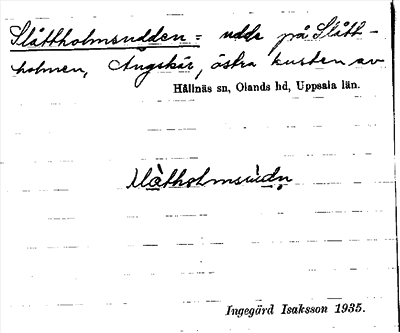 Slåttholmsudden = udde på Slått-
holmen, Ängskär, östra kusten av
Hållnäs sn, Olands hd, Uppsala län.
Ingegärd Isaksson 1935.